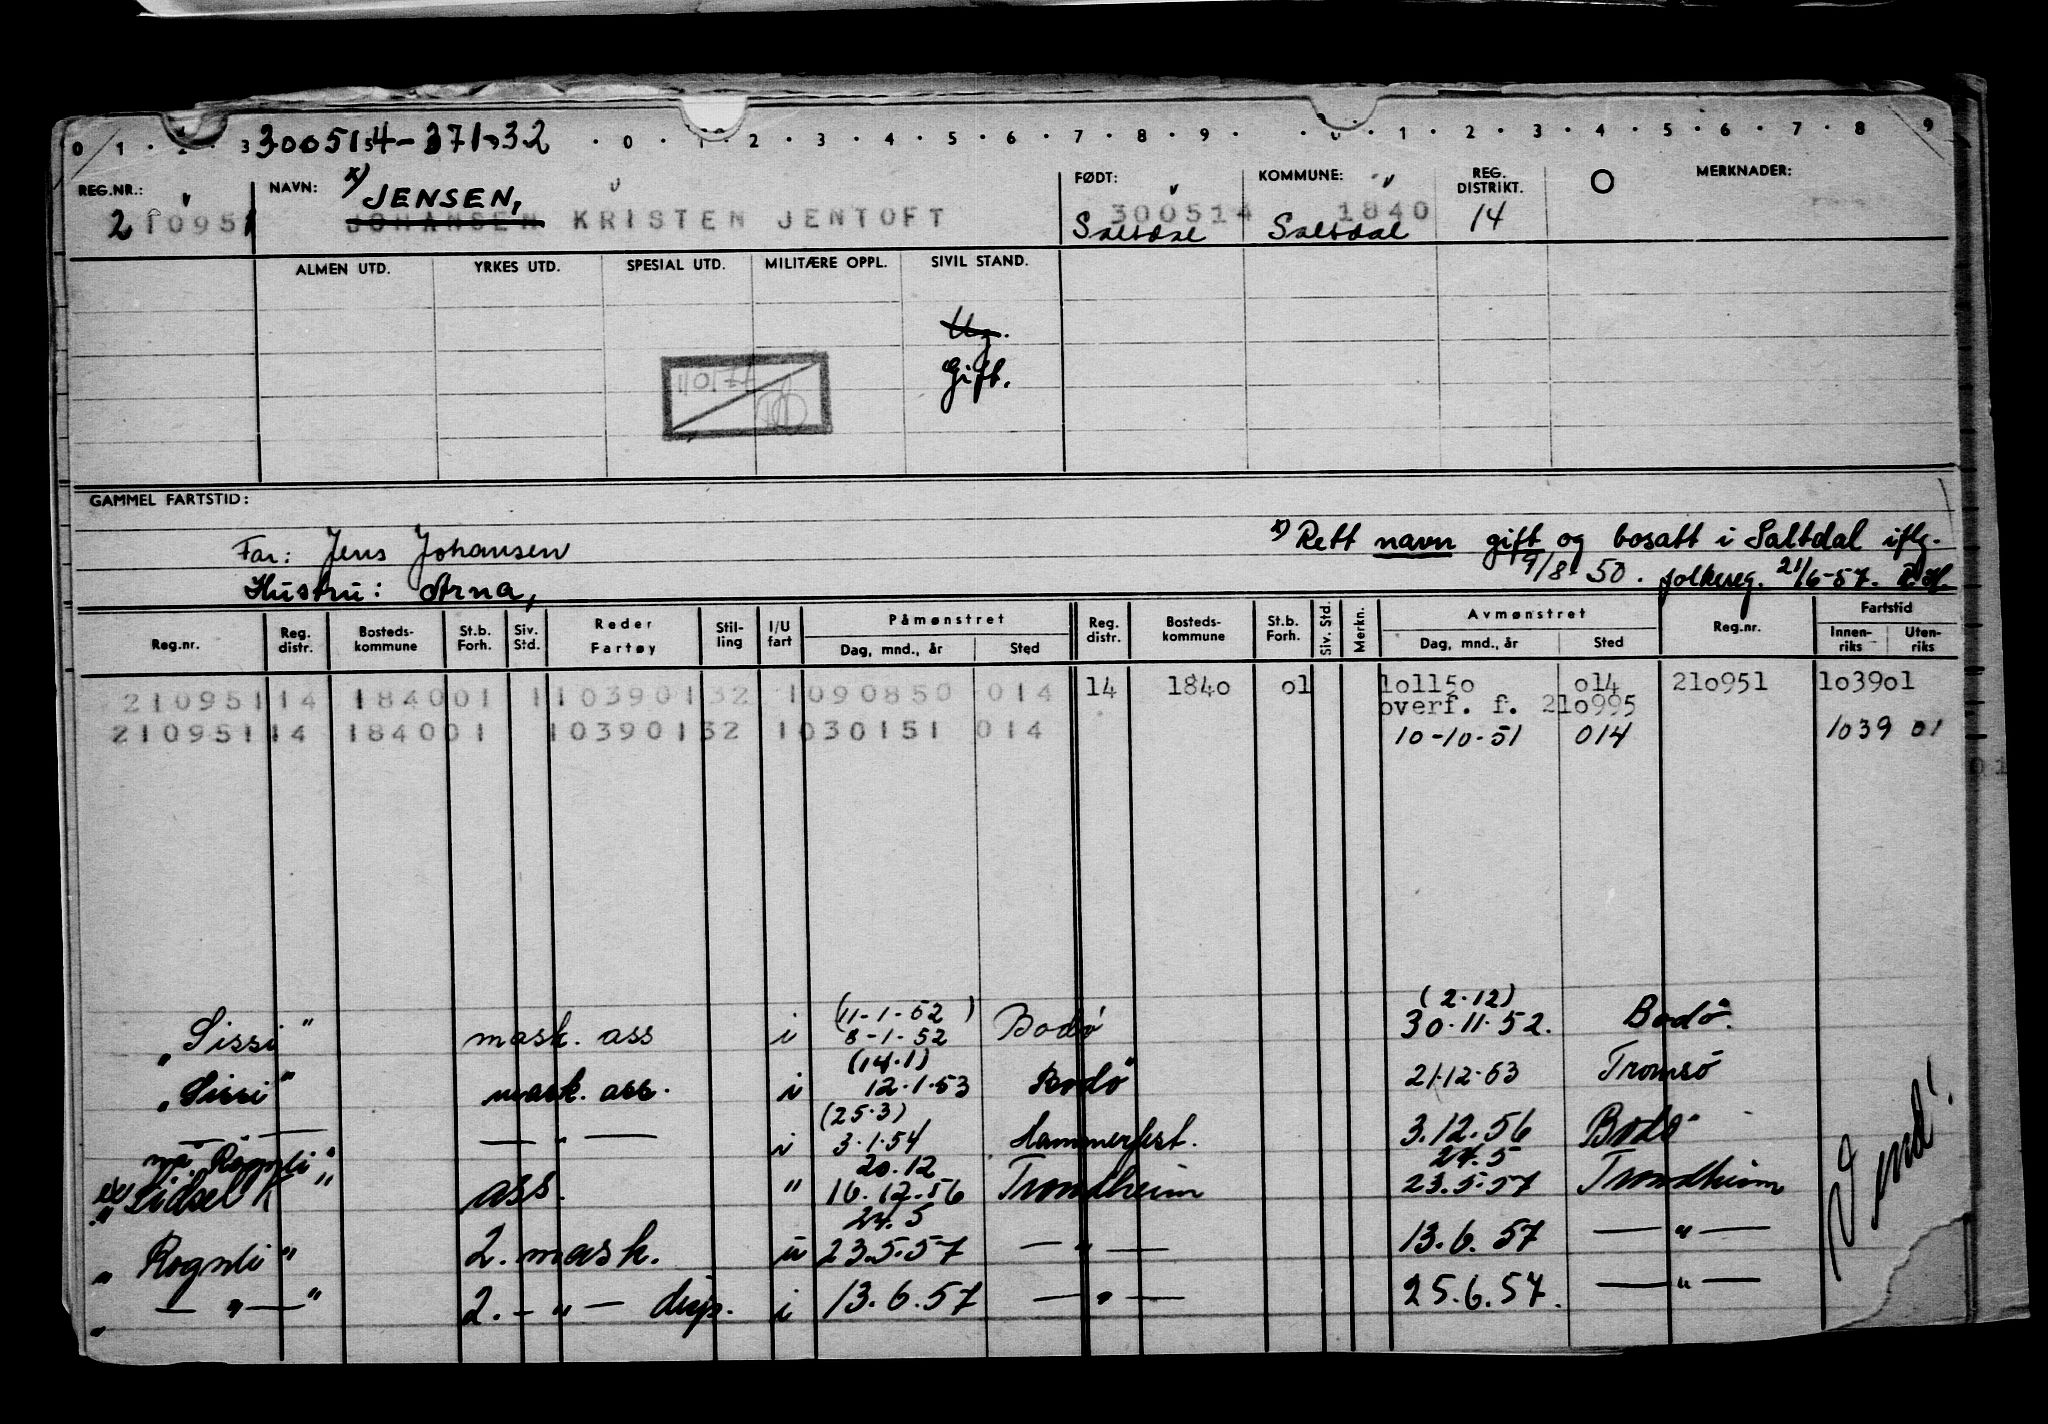 0 1 · 2 · 3 300514-37132 · 0 · 1 · 2 · 3 · 4 · 5 · 6 · 7 · 8 · 9 · · 0 · 1 · 2 · 3 · 4 · 5 · 6 · 7 · 8 9
REG.NR.: NAVN: x) JENSEN, FØDT: KOMMUNE: REG. DISTRIKT. O MERKNADER:
210951 JOHANSEN KRISTEN JENTOFT 300514 1840 14
Saltdal Saltdal
ALMEN UTD. YRKES UTD. SPESIAL UTD. MILITÆRE OPPL. SIVIL STAND.
Ug.
Gift.
GAMMEL FARTSTID:
Far: Jens Johansen x) Rett navn gift og bosatt i Saltdal iflg.
Hustru: Arna, 9/8-50. folkereg. 21/6-57.
Reg.nr. Reg. distr. Bosteds-kommune St.b. Forh. Siv. Std. Reder Fartøy Stil-ling I/U fart Påmønstret Dag, mnd., år Sted Reg. distr. Bosteds-kommune St.b. Forh. Siv. Std. Merkn. Avmønstret Dag, mnd., år Sted Reg.nr. Fartstid Innen-riks Uten-riks
210951 14 1840 01 1 10390132 1090850 014 14 1840 01 101150 014 210951 103901
overf. f. 210995
210951 14 1840 01 10390132 1030151 014 10-10-51 014 1039 01
(11-1-52) (2.12)
"Sissi" mask. ass i 8-1-52 Bodø 30.11.52. Bodø.
(14.1)
"Sissi" mask. ass. i 12.1.53 Bodø 21.12.53 Tromsø
(25.3)
— " — — " — i 3.1.54 Hammerfest. 3.12.56 Bodø
nå. Rognli" 20.12 24.5
ex "Sidsel K" ass. " 16.12.56 Trondheim 23.5.57 Trondheim
24.5
"Rognli" 2. mask. u 23.5.57 — " — 13.6.57 — " —
" — " — " 2. — " — disp. i 13.6.57 — " — 25.6.57. — " —
Vend!
01